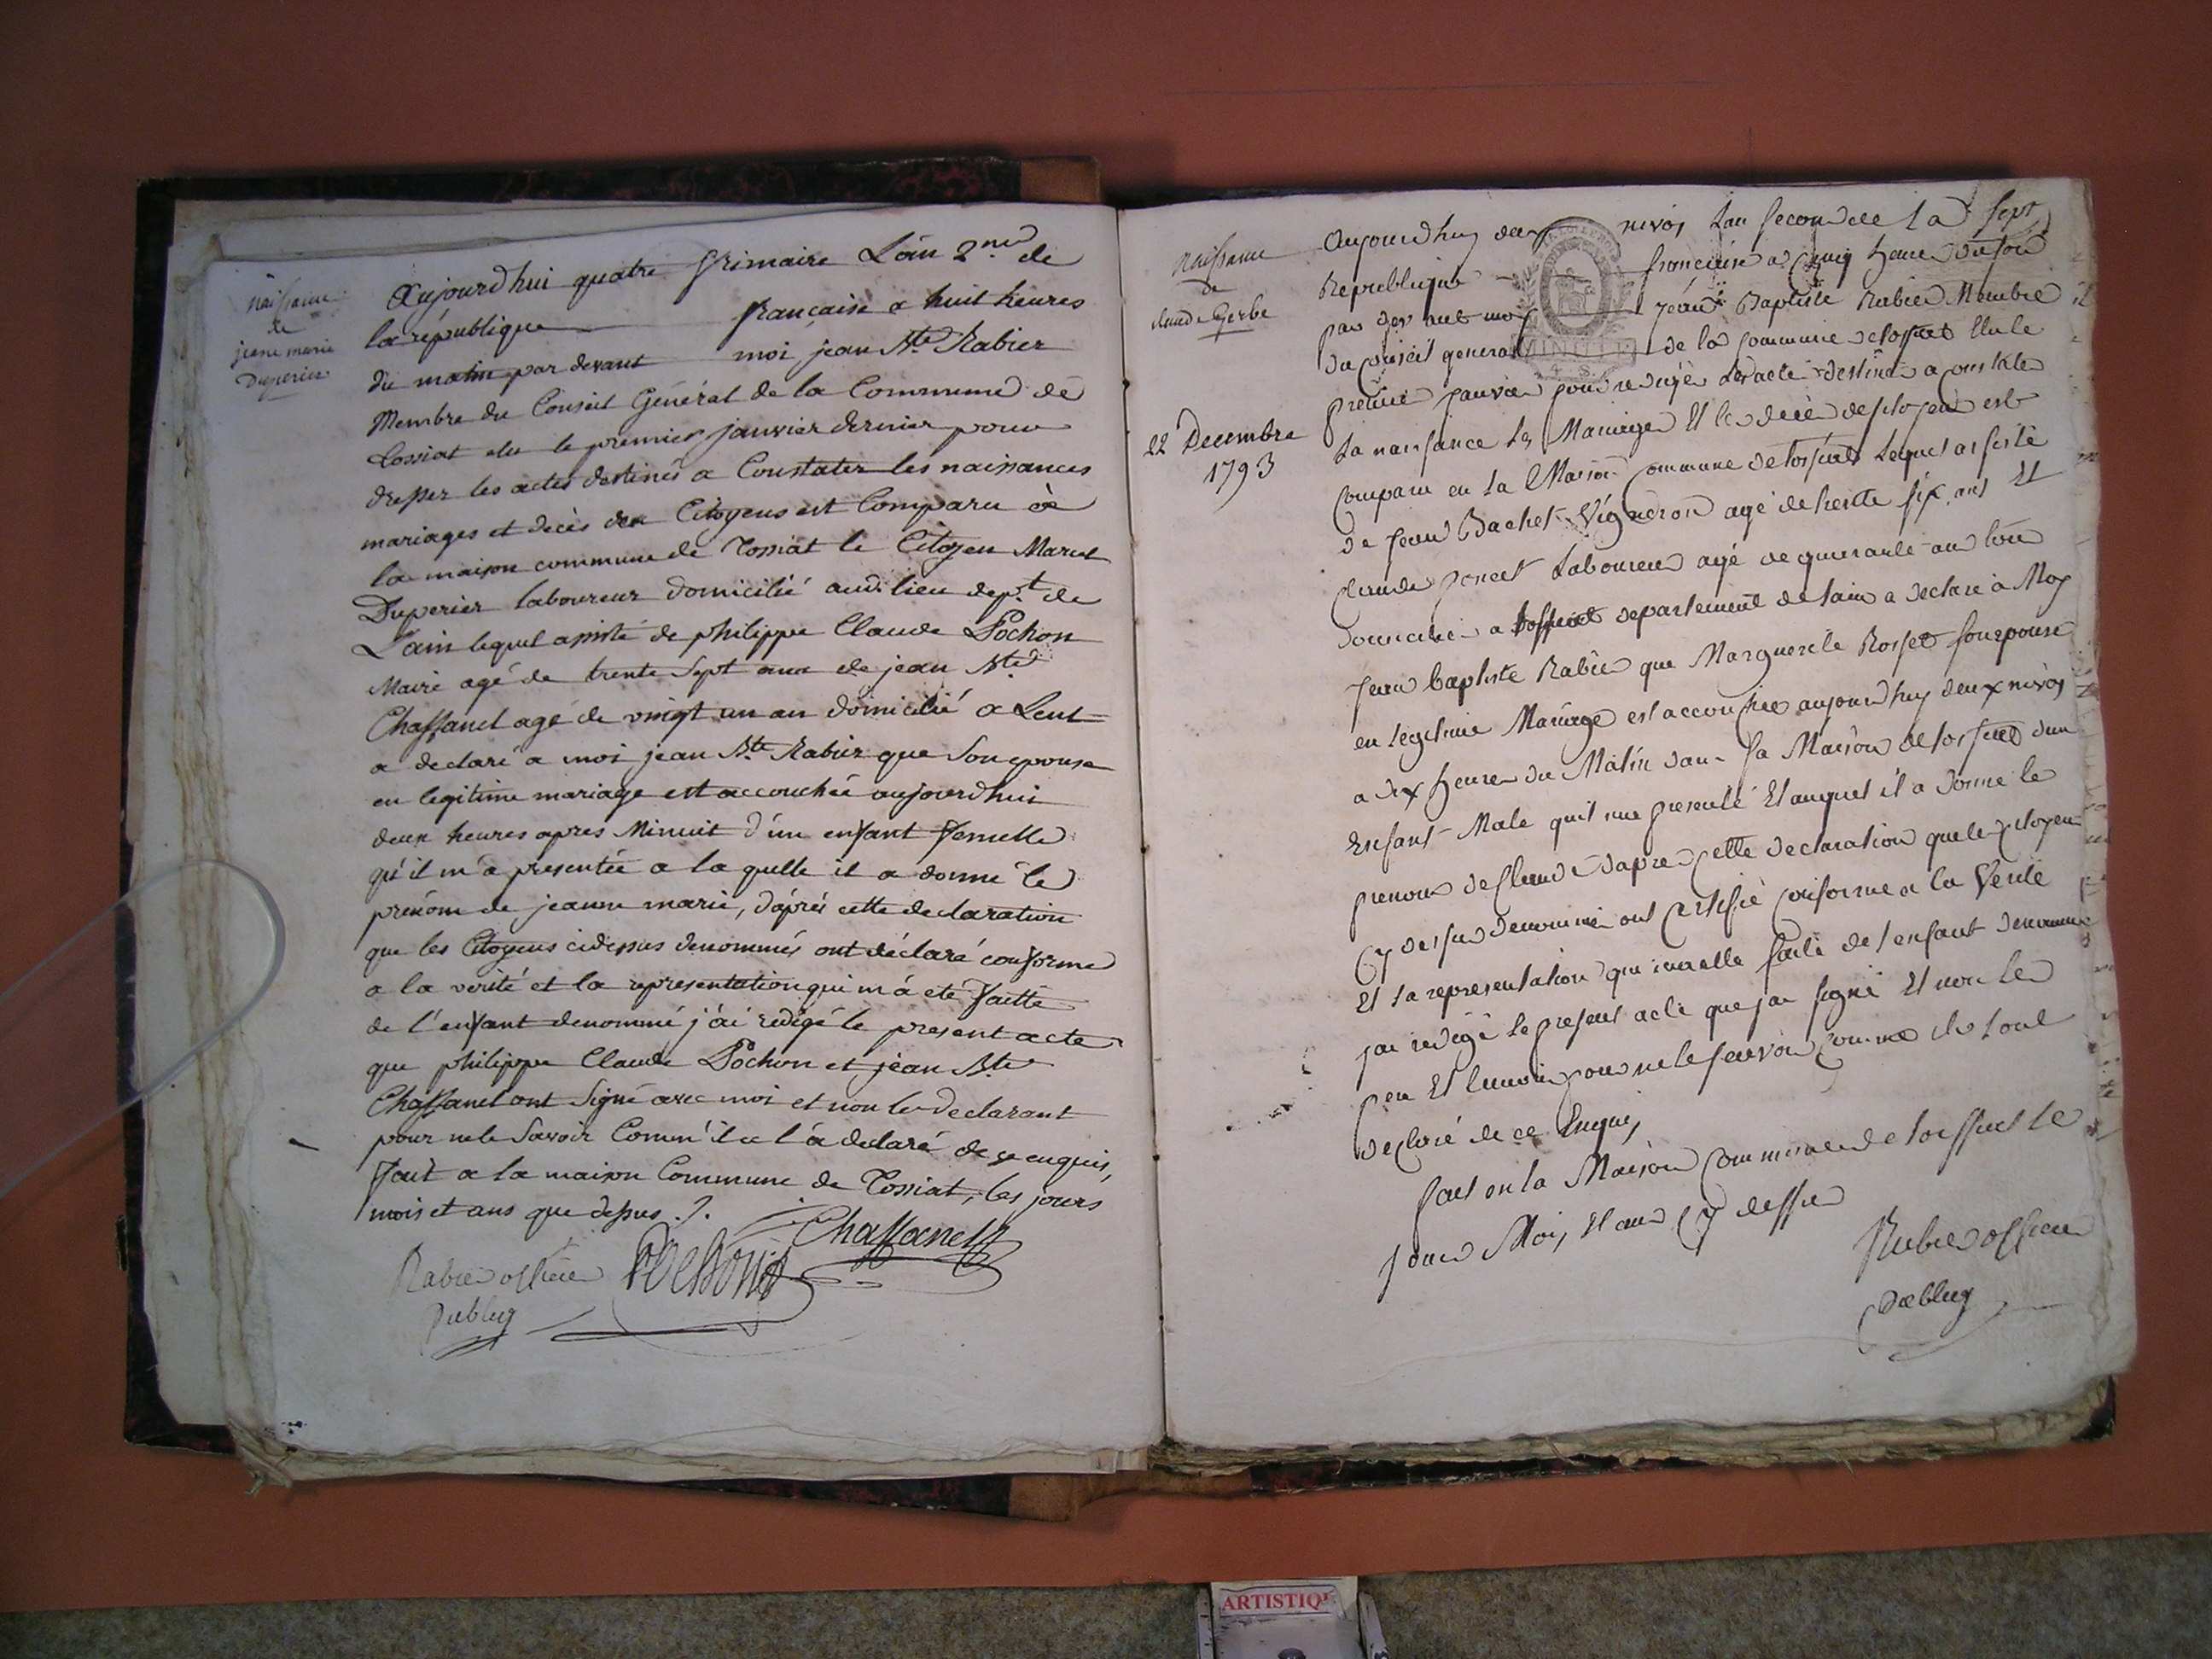 naissance
de
jeanne marie
Duperier
Aujourd'hui quatre frimaire L'an 2.me de
la république française a huit heures
du matin par devant moi jean Bte Rabier
Membre du Conseil Général de la Commune de
Tossiat elu le premier janvier dernier pour
dresser les actes destinés a Constater les naissances
mariages et décès des Citoyens est Comparu à
la maison commune de Tossiat le Citoyen Marcel
Duperier laboureur domicilié audi. lieu dept. de
L'ain lequel assisté de philippe Claude Pochon
Maire agé de trente sept ans de jean Bte
Chassanel agé de vingt un an domicilié a Lent
a declaré a moi jean Bte Rabier que son epouse
en legitime mariage est accouchée aujourd'hui
deux heures apres Minuit d'un enfant femelle
qu'il m'a presentée a la quelle il a donné le
prénom de jeanne marie, d'après cette declaration
que les Citoyens cidessus denommés ont déclaré conforme
a la verité et la representation qui m'a eté faitte
de l'enfant denommé j'ai redigé le present acte
que philippe Claude Pochon et jean Bte
Chassanel ont signé avec moi et non le declarant
pour ne le savoir Comm'il l'a declaré de ce enquis,
fait a la maison Commune de Tossiat, les jours
mois et ans que dessus ./.
Chassanel
Rabier officier
Publiq
naissance
de
claude Gerbe
22 Decembre
1793
Aujourdhuy deux nivos Lan second de La
Republique française a cinq heure du soir
par devant moy Jean Baptiste Rabier Membre
du conseil general de la commune de tossiat Elu le
MINUTE
4. S.
premier janvier pour redigé les acte destiné a constater
La naissance Les Mariage Et le decè des citoyen est
comparu en La Maison commune de tossiat Lequel assisté
de Jean Bachet Vigneron agé de trente six ans Et
Claude poncet Laboureur agé de quarante ans tous
domicilié a tossiat departement de lain a declaré à Moy
Jean baptiste Rabier que Marguerite Rosset son epouse
en Legitime Mariage est accouchée aujourdhuy deux nivos
a dix heure du Matin dans sa Maison de tossiat dun
Enfant Male quil ma presenté Et auquel il a donné le
prenom de Claude dapres cette declaration que le citoyen
Cy dessus denommé ont certifié conforme a la Verité
Et La representation qui ma eté faite de lenfant denommé
jai redigé Le present acte que jai signé Et non le
pere Et temoin pour ne le scavoir comme ils lont
declaré de ce Enquis
fait en la Maison commune de tossiat le
jour Mois Et an cy dessus
Rabier officier
Publiq
ARTISTIQ